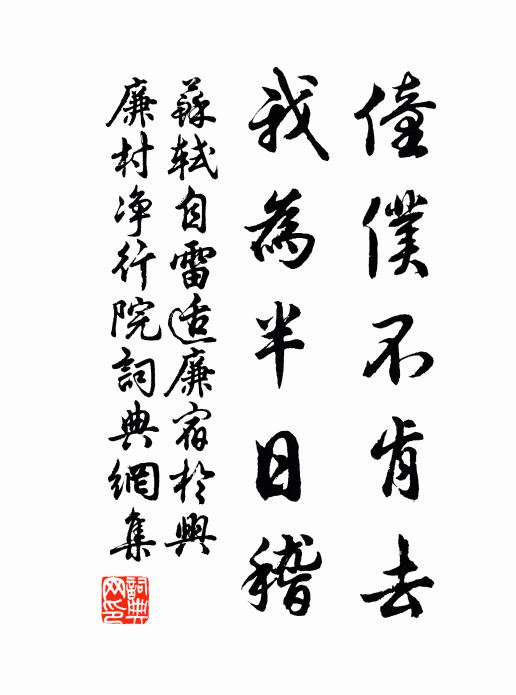 僮僕不肯去
我為半日稽
蘇軾自雷適廉宿於興
廉村净行院詞典網集
詞典網印